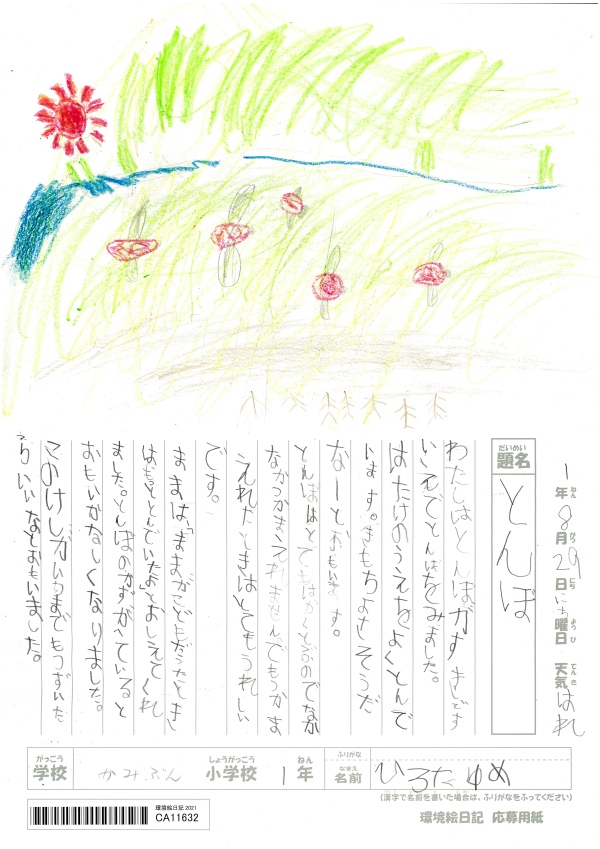 1年8月29日にち曜日 天気はれ
ねん がつ にち ようび てんき
だいめい
題名
とんぼ
わたしはとんぼがすきです
いえでとんぼをみました。
はたけのうえをよくとんで
います。きもちよさそうだ
なーとおもいます。
とんぼはとてもはやくとぶのでなか
なかつかまえれませんでもつかま
えれたときはとてもうれしい
です。
ままは、「ままがこどもだったとき
はもっととんでいたよ」とおしえてくれ
ました。とんぼのかずがへっていると
おもいかなしくなりました。
このけしきがいつまでもつずいた
らいいなとおもいました。
がっこう
学校
かみぶん
しょうがっこう
小学校
1年
ねん
ふりがな
なまえ
名前
ひろたゆめ
(漢字で名前を書いた場合は、ふりがなをふってください)
環境絵日記 応募用紙
環境絵日記 2021
CA11632